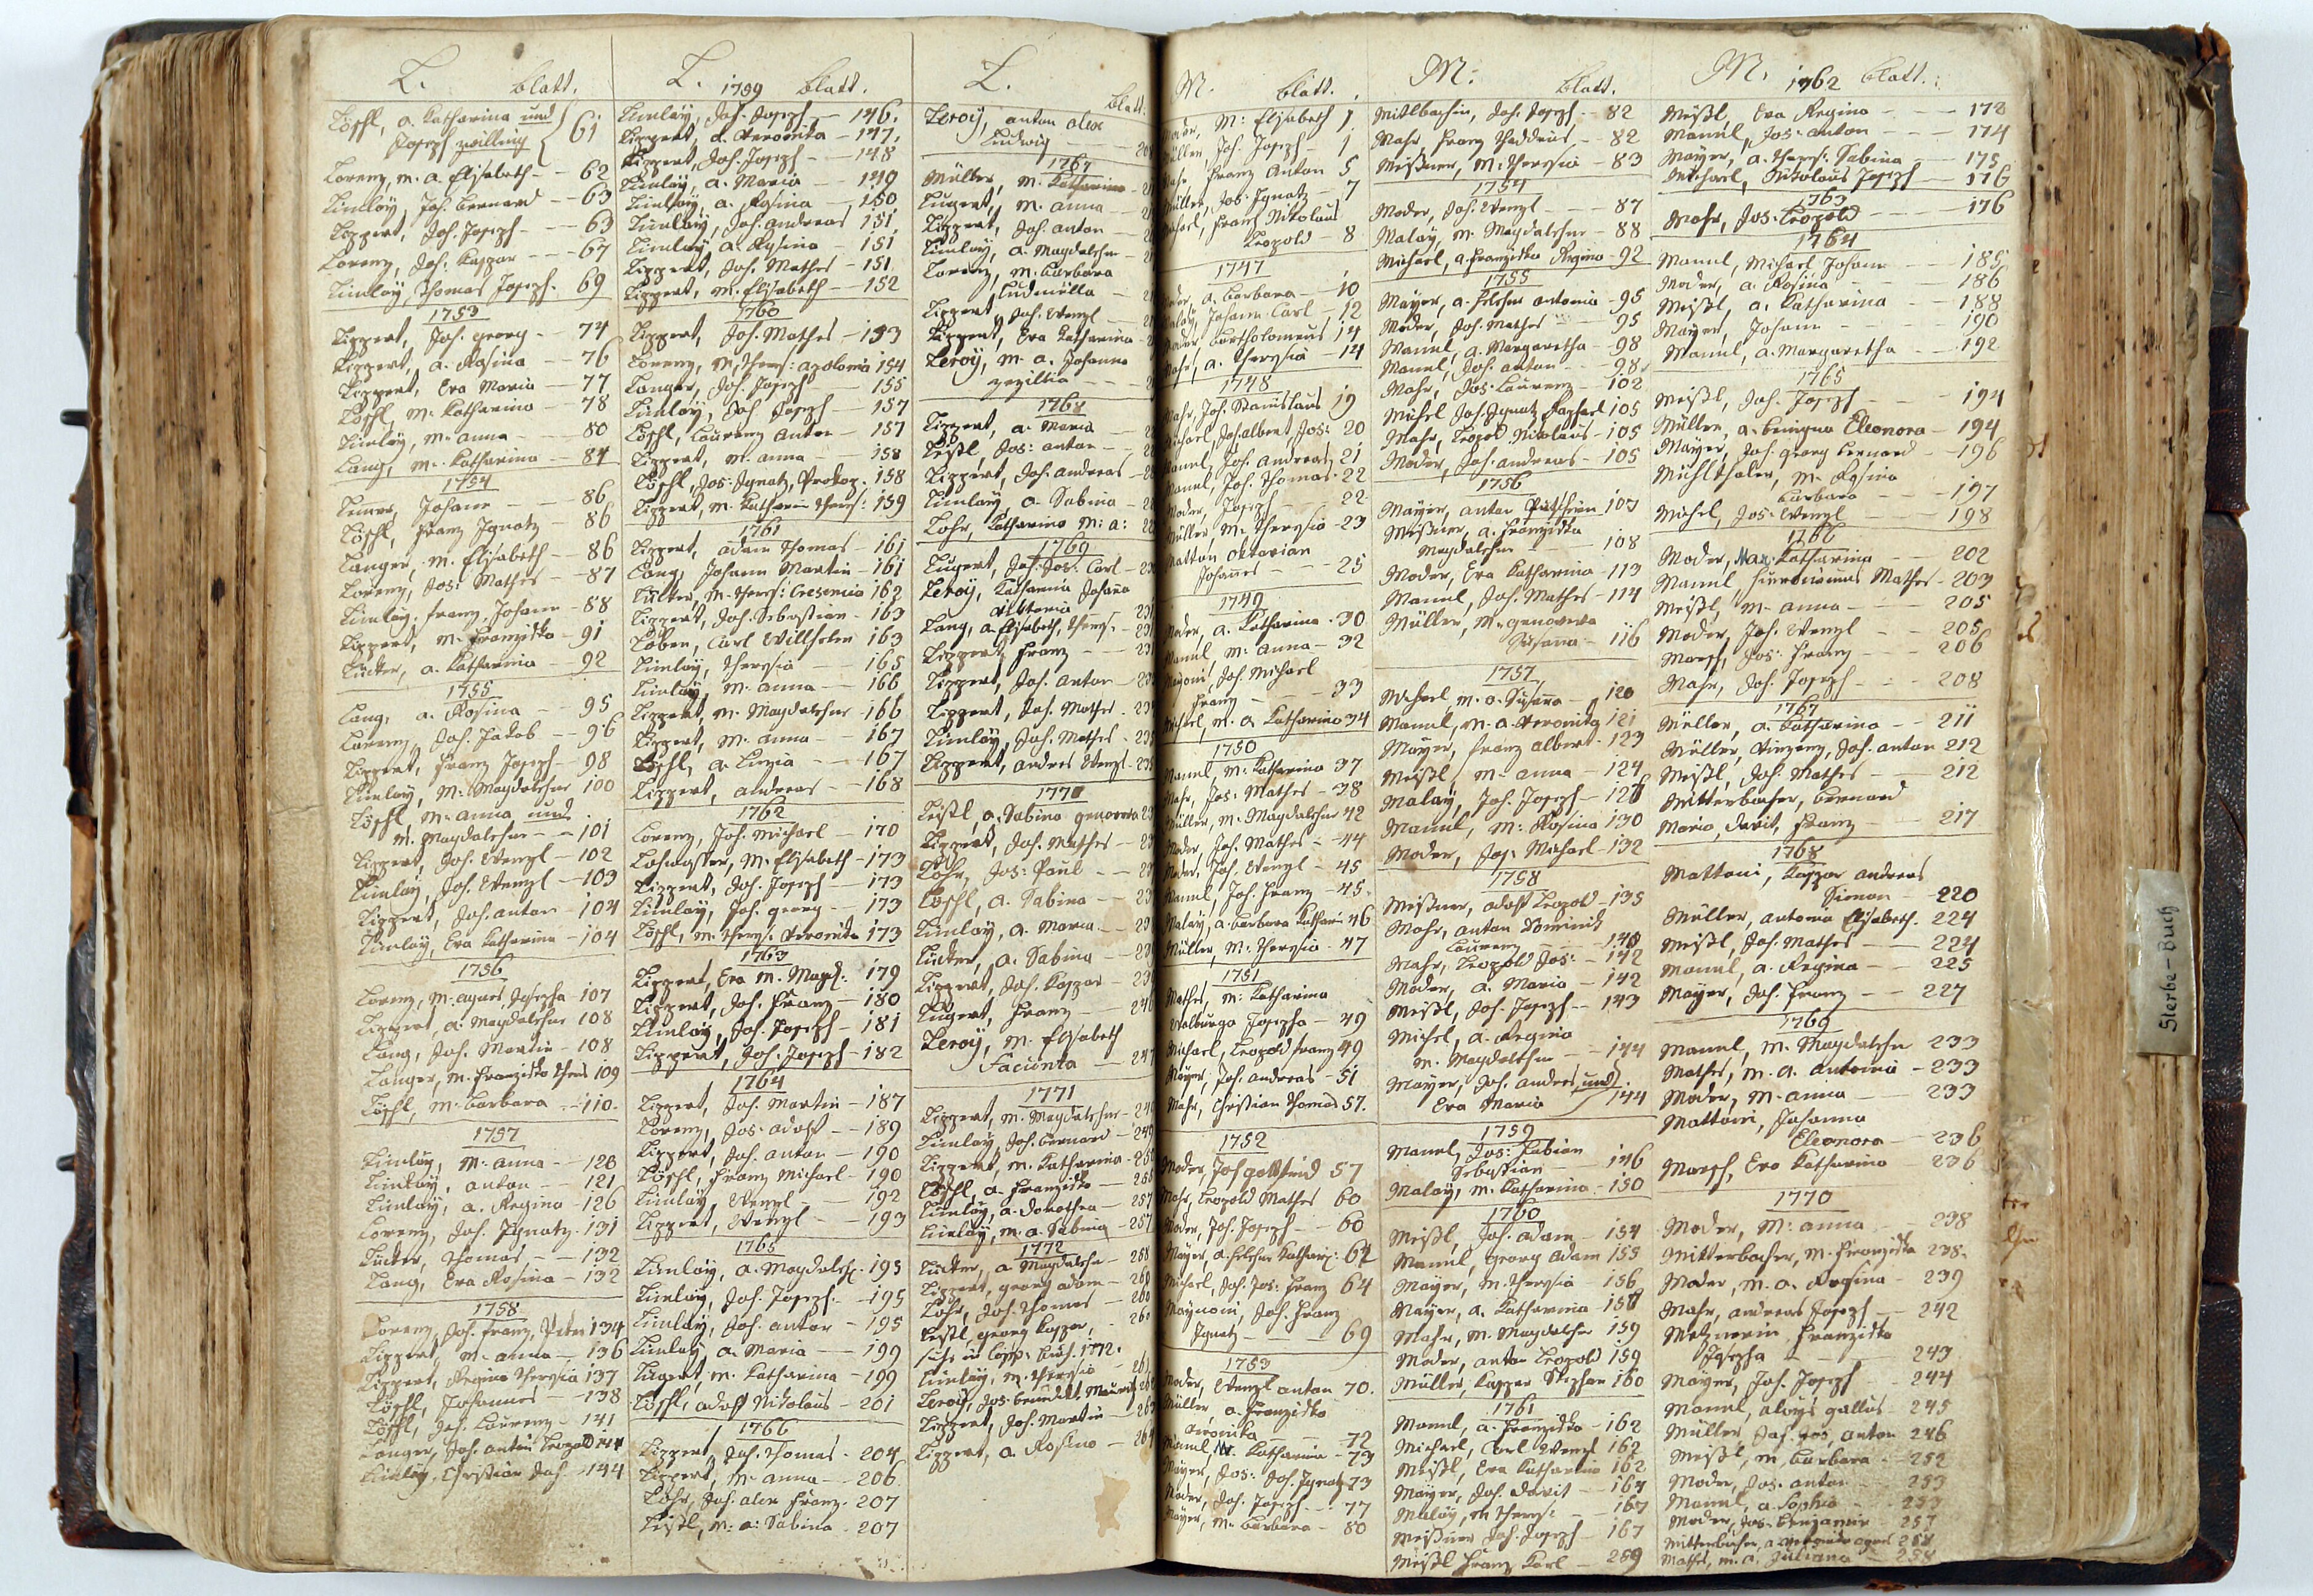 L. blatt.
Löschl, a. Katharina und
Joseph zwilling 61
Lorenz, m. a. Elisabeth - 62
Linlaÿ, Joh. Bernard - 63
Lippert, Joh. Joseph - 63
Lorenz, Joh. Kaspar - 67
Linlaÿ, Thomas Joseph - 69
1753
Lippert, Joh. georg - 74
Lippert, a. Rosina - 76
Lippert, Eva Maria - 77
Löschl, M. Katharina - 78
Linlaÿ, M. anna - 80
Lang, M. Katharina - 84
1754
Johann - 86
Löschl, Franz Ignatz - 86
Langer, M. Elisabeth - 86
Lorenz, Jos: Mathes - 87
Linlaÿ, franz Johann - 88
Lippert, M. Franziska - 91
a. Katharina - 92
1755
Lang, a. Rosina - 95
Lorenz, Joh. Jakob - 96
Lippert, Franz Joseph - 98
Linlaÿ, M. Magdalena 100
Löschl, M. anna und
M. Magdalena - 101
Lippert, Joh. Wenzl - 102
Linlaÿ, Joh. Wenzl - 103
Lippert, Joh. anton - 104
Linlaÿ, Eva Katharina - 104
1756
Lorenz, M. agnes, Josepha - 107
Lippert, a. Magdalena 108
Lang, Joh. Martin - 108
Langer, M. Franziska 109
Löschl, M. Barbara - 110
1757
Linlaÿ, M. anna - 120
Linlaÿ, anton - 121
Linlaÿ, a. Regina - 126
Lorenz, Joh. Ignatz - 131
Thomas - 132
Lang, Eva Rosina - 132
1758
Lorenz, Joh. franz 134
Lippert, M. anna - 136
Lippert, Regina Theresia 137
Löschl, Johannes - 138
Löschl, Joh. Lorenz - 141
Langer, Joh. anton Leopold 144
Linlaÿ, Christian Joh. - 144
L. 1759 blatt.
Linlaÿ, Joh. Joseph - 146
Lippert, a. Veronika - 147
Lippert, Joh. Joseph - 148
Linlaÿ, a. Maria - 149
Linlaÿ, a. Rosina - 150
Linlaÿ, Joh. andreas 151
Linlaÿ, a. Rosina - 151
Lippert, Joh. Mathes - 151
Lippert, M. Elisabeth - 152
1760
Lippert, Joh. Mathes - 153
Lorenz, M. Theres: apolonia 154
Langer, Joh. Joseph - 155
Linlaÿ, Joh. Joseph - 157
Löschl, Laurenz Anton - 157
Lippert, M. anna - 158
Löschl, Jos: Ignatz, Prokop. 158
Lippert, M. Katharin Theres: 159
1761
Lippert, adam Thomas - 161
Lang, Johann Martin - 161
M. Theres: Cresencia 162
Lippert, Joh. Sebastian - 163
Löben, Carl Willhelm 163
Linlaÿ, Theresia - 165
Linlaÿ, M. anna - 166
Lippert, M. Magdalena - 166
Lippert, M. anna - 167
Löschl, a. Luzia - 167
Lippert, andreas - 168
1762
Lorenz, Joh. Michael - 170
M. Elisabeth - 173
Lippert, Joh. Joseph - 173
Linlaÿ, Joh. georg - 173
Löschl, M. Theres: Veronika 173
1763
Lippert, Eva M. Magd: 179
Lippert, Joh. Franz - 180
Linlaÿ, Joh. Joseph - 181
Lippert, Joh. Joseph - 182
1764
Lippert, Joh. Martin - 187
Lorenz, Jos: adolf - 189
Lippert, Joh. anton - 190
Löschl, Franz Michael - 190
Linlaÿ, Wenzl - 192
Lippert, Wenzl - 193
1765
Linlaÿ, a. Magdalen: 195
Linlaÿ, Joh. Joseph - 195
Linlaÿ, Joh. anton - 195
Linlaÿ, a. Maria - 199
Lugert, M. Katharina - 199
Löschl, adolf Nikolaus - 201
1766
Lippert, Joh. Thomas - 204
Lippert, M. anna - 206
Löhr, Joh. alex Franz. 207
Leistl, M. a. Sabina - 207
L. blatt.
Leroÿ, anton alex
Ludwig
1767
Müller, M. Katharina
Lugert, M. anna
Lippert, Joh. anton
Linlaÿ, a. Magdalena
Lorenz, M. Barbara
Ludmilla
Lippert, Joh. Wenzl
Lippert, Eva Katharina
Leroÿ, M. a. Johanna
zezillia
1768
Lippert, a. Maria
Leistl, Jos: anton
Lippert, Joh. andreas
Linlaÿ, a. Sabina
Löhr, Katharina M: a:
1769
Lugert, Joh. Jos: Carl
Leroÿ, Katharina Johana
Viktoria
Lang, a. Elisabeth, Theres.
Lippert, Franz
Lippert, Joh. anton
Lippert, Joh. Mathes
Linlaÿ, Joh. Mathes - 235
Lippert, andres Wenzl - 235
1770
Leistl, a. Sabina genoveva
Lippert, Joh. Mathes
Löhr, Jos: Paul
Löschl, a. Sabina
Linlaÿ, a. Maria
a. Sabina
Lippert, Joh. Kaspar
Lugert, Franz - 246
Leroÿ, M. Elisabeth
Facunta - 247
1771
Lippert, M. Magdalena
Linlaÿ, Joh. Bernard - 249
Lippert, M. Katharina
Löschl, a. Franziska
Linlaÿ, a. Dorothea - 257
Linlaÿ, M. a. Sabina - 257
1772
a. Magdalena - 258
Lippert, georg adam - 260
Löhr, Joh. Thomas - 260
Leistl, georg Kaspar, - 260
1772.
Linlaÿ, M. Theresia
Leroÿ, Jos: benedikt Mauritz
Lippert, Joh. Martin
Lippert, a. Rosina - 264
M. blatt.
Moder, M: Elisabeth 1
Müller, Joh. Joseph - 1
Mahr, Franz Anton 5
Müller, Jos: Ignatz - 7
Michael, Franz Nikolaus
Leopold - 8
1747
Moder, a. Barbara - 10
Malaÿ, Johann Carl - 12
Moder Bartholomeus 14
Mahr, a. Theresia - 14
1748
Mahr, Joh. Stanislaus 19
Michael, Joh. albert Jos: 20
Manul, Joh. Andreas 21
Manul, Joh. Thomas - 22
Moder, Joseph - 22
Müller, M. Theresia - 23
Mattoni Oktavian
Johannes - 25
1749
Moder, a. Katharina - 30
Manul, M. anna - 32
Joh. Michael
Franz - 33
Michael, M. a. Katharina 34
1750
Manul, M. Katharina 37
Mahr, Jos: Mathes - 38
Müller, M. Magdalena 42
Moder, Joh. Mathes - 44
Moder, Joh. Wenzl - 45
Manul, Joh. Franz - 45
Malaÿ, a. Barbara Kathari 46
Müller, M. Theresia - 47
1751
Mathes, M: Katharina
Walburga Josepha - 49
Michael, Leopold franz 49
Mayer, Joh. andreas - 51
Mahr, Christian Thomas 57.
1752
Moder, Joh. gottfried 57
Mahr, Leopold Mathes 60
Moder, Joh. Joseph - 60
Mayer, a. Helena Kathari: 62
Michael, Joh. Jos: Franz 64
Joh. Franz
Ignatz - 69
1753
Moder, Wenzl anton 70.
Müller, a. Franziska
Veronika - 72
Manul, M. Katharina - 73
Mayer, Jos: Joh. Ignatz 73
Moder, Joh. Joseph - 77
Mayer, M. Barbara - 80
M: blatt.
Joh. Joseph - 82
Mahr, Franz Thaddeus - 82
Meißner, M. Theresia - 83
1754
Moder, Joh. Wenzl - 87
Malaÿ, M. Magdalena - 88
Michael, a. Franziska Regina - 92
1755
Mayer, a. Helena antonia - 95
Moder, Joh. Mathes - 95
Manul, a. Margaretha - 98
Manul, Joh. anton - 98
Mahr, Jos: Laurenz - 102
Michel Joh. Ignatz Raphael 105
Mahr, Leopold Nikolaus - 105
Moder, Joh. andreas - 105
1756
Mayer, anton 107
Meißner, a. Franziska
Magdalena - 108
Moder, Eva Katharina - 113
Manul, Joh. Mathes - 114
Müller, M. genoveva
Susanna - 116
1757
Michael, M. a. Susana - 120
Manul, M. a. Veronika 121
Mayer, franz albert - 123
Meißl, M. anna - 124
Malaÿ, Joh. Joseph - 126
Manul, M: Rosina 130
Moder, Jos: Michael - 132
1758
Meißner, adolf Leopold - 135
Mahr, anton Dominik
Laurenz - 140
Mahr, Leopold Jos: - 142
Moder, a. Maria - 142
Meißl, Joh. Joseph - 143
Michel, a. Regina
M. Magdalena - 144
Mayer, Joh. andres und
Eva Maria 144
1759
Manul, Jos: Fabian
Sebastian - 146
Malaÿ, M. Katharina - 150
1760
Meißl, Joh. adam - 154
Manul, georg adam 155
Mayer, M. Theresia - 156
Mayer, a. Katharina 158
Mahr, M. Magdalena 159
Moder, anton Leopold 159
Müller, Kasper Stephan 160
1761
Manul, a. Franziska - 162
Michael, Carl Wenzl 162
Meißl, Eva Katharina 162
Mayer, Joh. David - 164
Malaÿ, M. Theres: - 167
Meißner Joh. Joseph - 167
Meißl Franz Karl - 269
M. 1762 blatt.
Meißl, Eva Regina - 172
Manul, Jos: anton - 174
Mayer, a. Theres: Sabina - 175
Michael, Nikolaus Joseph - 176
1763
Mahr, Jos: Leopold - 176
1764
Manul, Michael Johann - 185
Moder, a. Rosina - 186
Meißl, a. Katharina - 188
Mayer, Johann - 190
Manul, a. Margaretha - 192
1765
Meißl, Joh. Joseph - 194
Müller, a. benigna Eleonora - 194
Mayer, Joh. georg bernard - 196
Mühlthaler, M. Rosina
Barbara - 197
Michel, Jos: Wenzl - 198
1766
Moder, Mar. Katharina - 202
Manul, Hieronimus Mathes - 203
Meißl, M. anna - 205
Moder, Joh. Wenzl - 205
Marsch, Jos: Franz - 206
Mahr, Joh. Joseph - 208
1767
Müller, a. Katharina - 211
Müller, Vinzenz, Joh. anton 212
Meißl, Joh. Mathes - 212
Mitterbacher, bernard
Maria, David, Franz - 217
1768
Mattoni, Kaspar andreas
Simon - 220
Müller, antonia Elisabeth. 224
Meißl, Joh. Mathes - 224
Manul, a. Regina - 225
Mayer, Joh. Franz - 227
1769
Manul, M. Magdalena 233
Mathes, M. a. Antonia - 233
Moder, M. anna - 233
Mattoni, Johanna
Eleonora - 236
Marsch, Eva Katharina 236
1770
Moder, M: anna - 238
Mitterbacher, M. Franziska 238.
Moder, M. a. Rosina - 239
Mahr, andreas Joseph - 242
Metznerin Franziska
Josepha - 243
Mayer, Joh. Joseph - 244
Manul, aloys gallus - 245
Müller, Joh. Jos, anton 246
Meißl, M. Barbara - 252
Moder, Jos. anton - 253
Manul, a. Sophia - 253
Moder, Jos. Benjamin - 257
Mitterbacher, a 258
Mathes, M. a. Juliana - 258
Sterbe-Buch